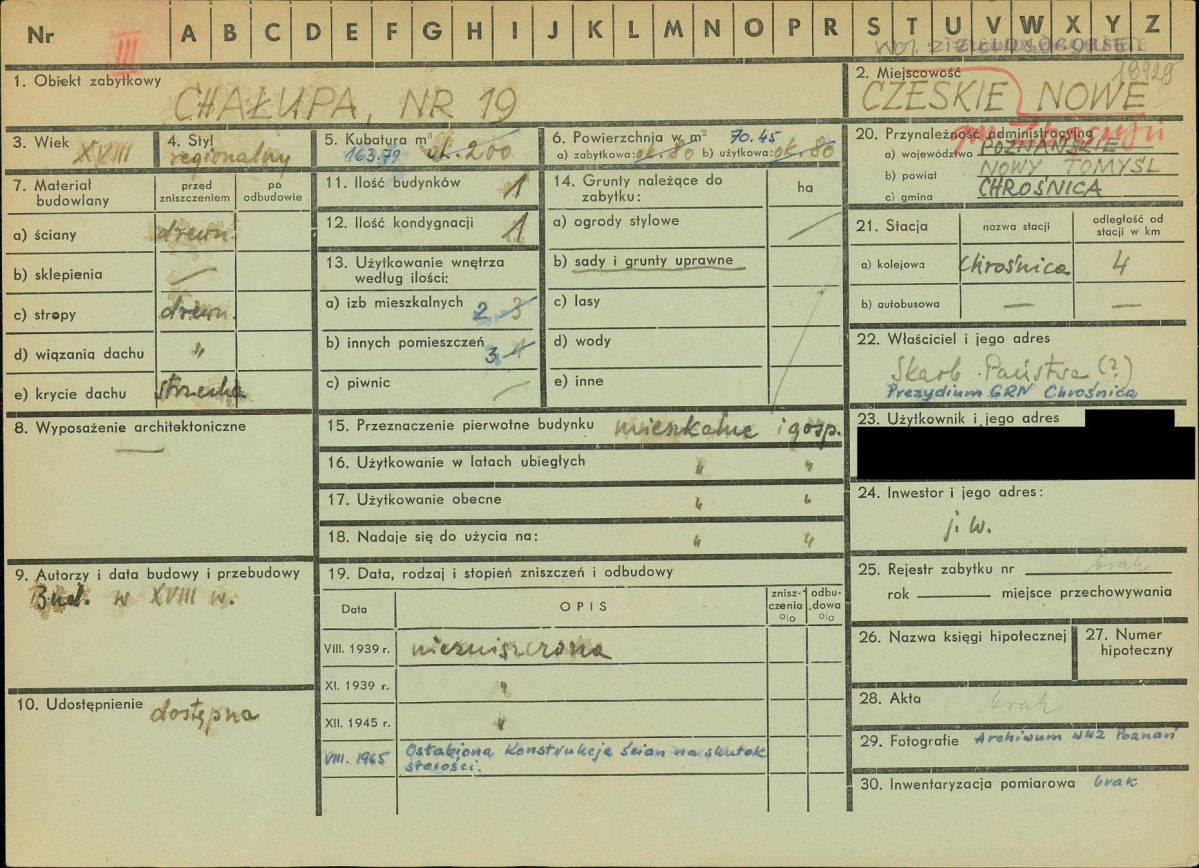 Nr III A B C D E F G H I J K L M N O P R S T U V W X Y Z
woj. ZIELONOGÓRSKIE
18929
1. Obiekt zabytkowy
CHAŁUPA, NR 19
2. Miejscowość
CZESKIE NOWE
3. Wiek XVIII
4. Styl
regionalny
5. Kubatura m³
163.79 ok. 200
6. Powierzchnia w m² 70.45
a) zabytkowa: ok. 80 b) użytkowa: ok. 80
20. Przynależność administracyjna
gm. Zbąszyń
a) województwo POZNAŃSKIE
b) powiat NOWY TOMYŚL
c) gmina CHROŚNICA
7. Materiał budowlany
przed zniszczeniem
po odbudowie
a) ściany drewn.
b) sklepienia —
c) stropy drewn.
d) wiązania dachu "
e) krycie dachu strzecha
11. Ilość budynków 1
12. Ilość kondygnacji 1
13. Użytkowanie wnętrza
według ilości:
a) izb mieszkalnych 2 3
b) innych pomieszczeń 3 1
c) piwnic —
14. Grunty należące do
zabytku:
ha
a) ogrody stylowe —
b) sady i grunty uprawne
c) lasy
d) wody
e) inne
21. Stacja
nazwa stacji
odległość od
stacji w km
a) kolejowa Chrośnica 4
b) autobusowa — —
22. Właściciel i jego adres
Skarb Państwa (?)
Prezydium GRN Chrośnica
8. Wyposażenie architektoniczne
—
15. Przeznaczenie pierwotne budynku mieszkalne i gosp.
16. Użytkowanie w latach ubiegłych " "
17. Użytkowanie obecne " "
18. Nadaje się do użycia na: " "
23. Użytkownik i jego adres
24. Inwestor i jego adres:
j. w.
9. Autorzy i data budowy i przebudowy
Bud. w XVIII w.
10. Udostępnienie dostępna
19. Data, rodzaj i stopień zniszczeń i odbudowy
Data
OPIS
znisz-
czenia
o/o
odbu-
dowa
o/o
VIII. 1939 r. niezniszczona
XI. 1939 r. "
XII. 1945 r. "
VIII. 1965 Osłabiona konstrukcja ścian na skutek
starości.
25. Rejestr zabytku nr brak
rok miejsce przechowywania
26. Nazwa księgi hipotecznej
27. Numer
hipoteczny
28. Akta brak
29. Fotografie Archiwum WKZ Poznań
30. Inwentaryzacja pomiarowa brak